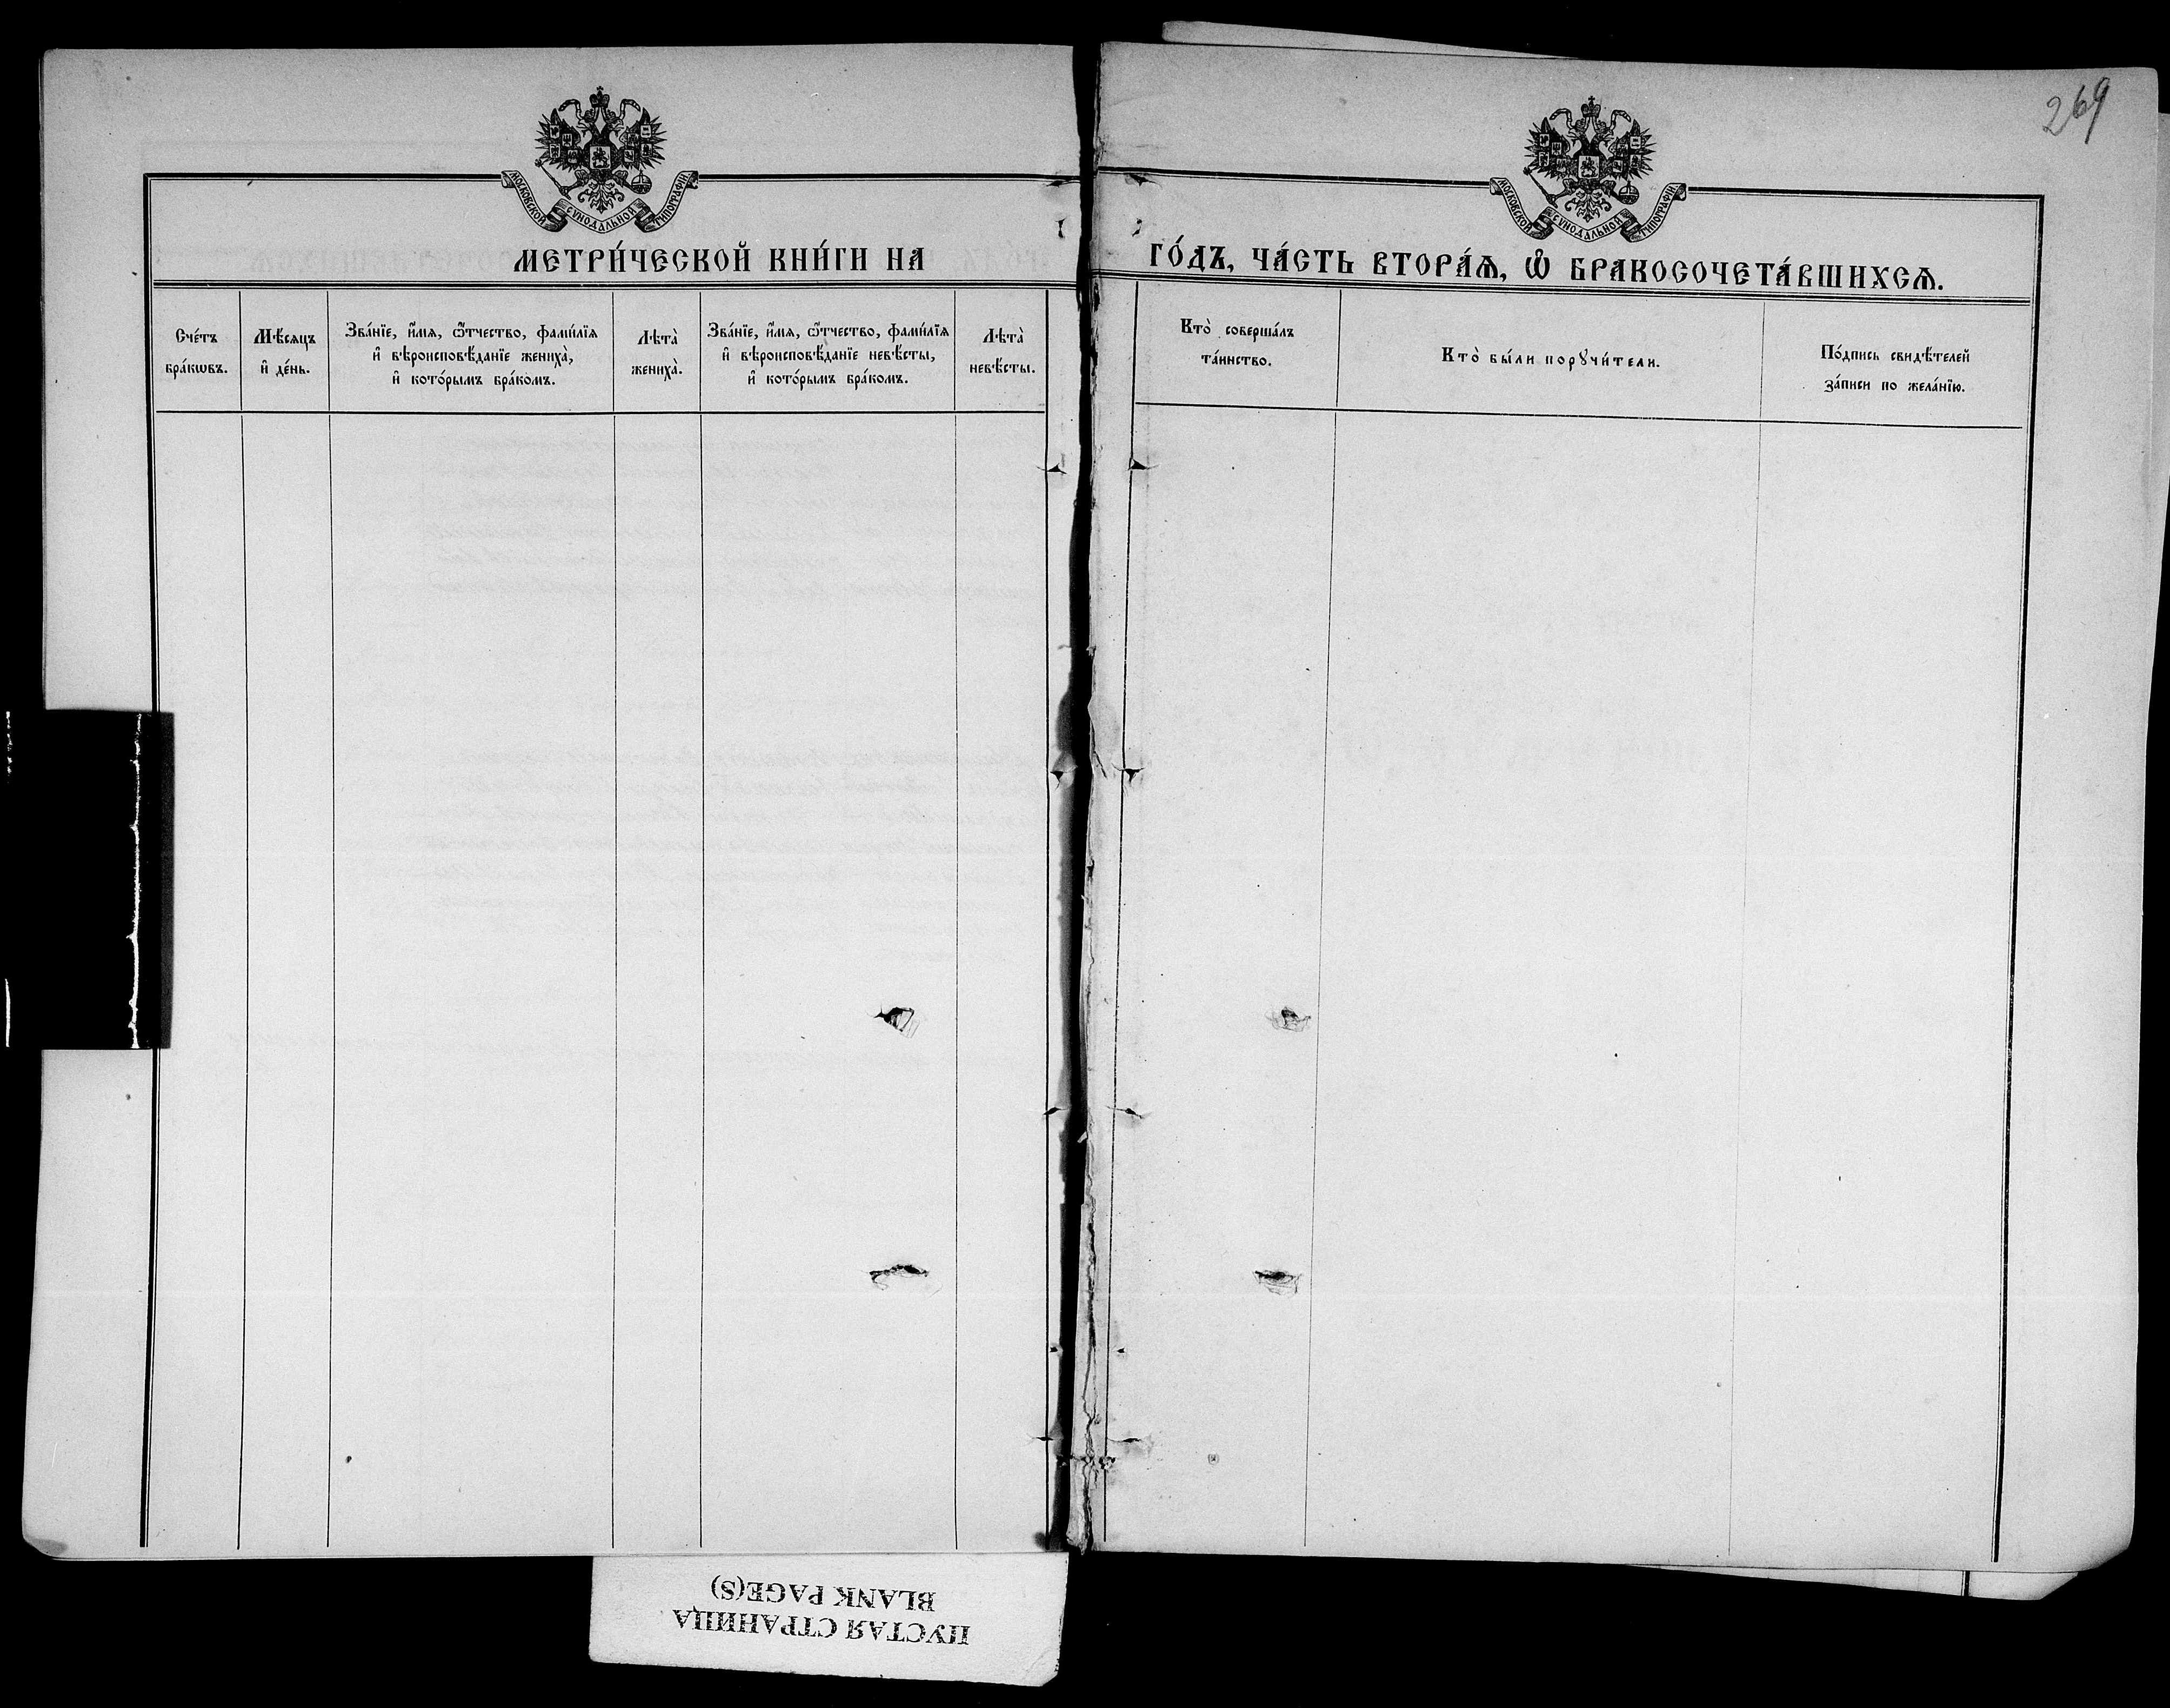 269
МОСКОВСКОЙ СѴНОДАЛЬНОЙ ТИПОГРАФІИ
МОСКОВСКОЙ СѴНОДАЛЬНОЙ ТИПОГРАФІИ
МЕТРИ́ЧЕСКОЙ КНИ́ГИ НА
ГО́ДЪ, ЧА́СТЬ ВТОРА́Ѧ, Ѽ БРАКОСОЧЕТА́ВШИХСѦ.
Сче́тъ
бра́кѡвъ.
Мѣ́сяцъ
и҆ де́нь.
Зва́нїе, и҆́мя, ѻ҆́тчество, фами́лїя
и҆ вѣроисповѣ́данїе жениха̀,
и҆ кото́рымъ бра́комъ.
Лѣта̀
жениха̀.
Зва́нїе, и҆́мя, ѻ҆́тчество, фами́лїя
и҆ вѣроисповѣ́данїе невѣ́сты,
и҆ кото́рымъ бра́комъ.
Лѣта̀
невѣ́сты.
Кто̀ соверша́лъ
та́инство.
Кто̀ бы́ли порꙋчи́тели.
По́дпись свидѣ́телей
за́писи по жела́нїю.
ПУСТАЯ СТРАНИЦА
BLANK PAGE(S)